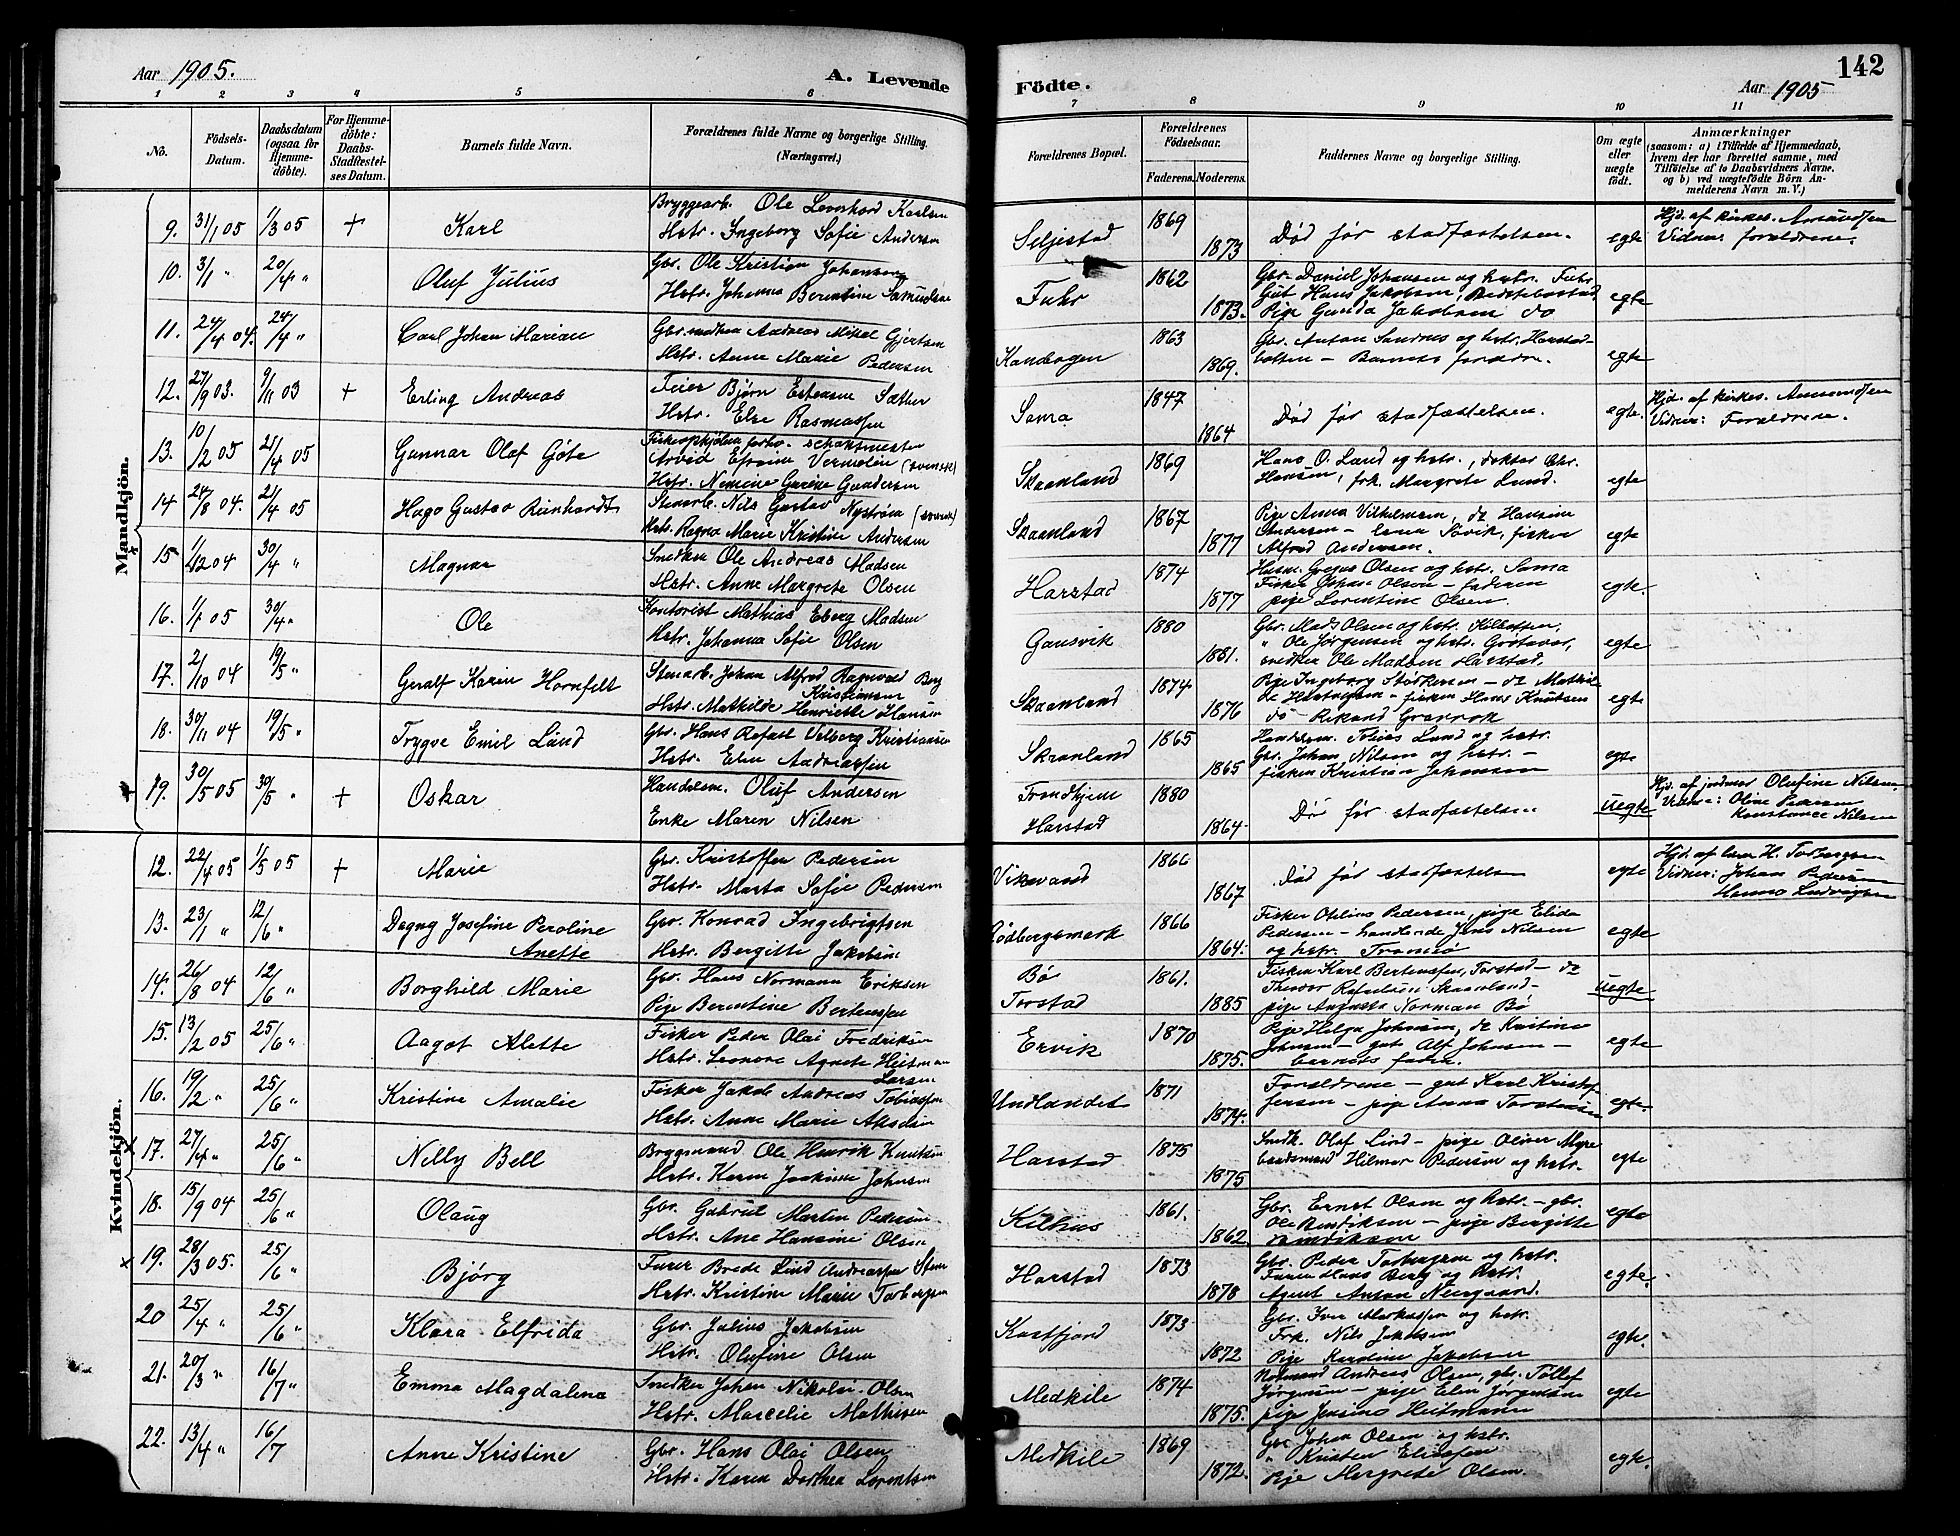 Aar 1905. A. Levende
1 2 3 4 5 6
No. Födsels-Datum. Daabsdatum (ogsaa for Hjemmedöbte). For Hjemmedöbte: Daabs-Stadfæstelses Datum. Barnets fulde Navn. Forældrenes fulde Navne og borgerlige Stilling. (Næringsvei.)
Mandkjön.
9. 31/1 05 1/3 05 + Karl Bryggearb. Ole Karlsen
Hstr. Ingeborg Sofie Andersen
10. 3/1 " 20/4 " Oluf Julius Gbr. Ole Kristian Johansen
Hstr. Johanna Berentine Samuelsen
11. 24/4 04. 24/4 " Carl Johan Marian Gbr. Andreas Mikal Gjertsen
Hstr. Anne Marie Pedersen
12. 27/9 03. 9/11 03 + Erling Andreas Feier Bjørn Estensen Sæther
Hstr. Else Rasmussen
13. 10/2 05 21/4 05 Gunnar Olaf Gøte
Arvid Efraim (svensk)
Hstr.
14 24/8 04. 21/4 05 Hugo Gustav Reinhardt Stenarb. Nils Gustav Nystrøm (svensk)
Hstr. Ragna Marie Kristine Andersen
15. 1/12 04 30/4 " Magnar Snedker Ole Andreas Madsen
Hstr. Anne Margrete Olsen
16. 1/1 05 30/4 " Ole Kontorist Mathias Eberg Madsen
Hstr. Johanna Sofie Olsen
17. 2/10 04 19/5 " Geralf Karin Hornfelt Stenarb. Johan Alfred Ragnvad Berg
Kristiansen
Hstr. Mathilde Henriette Hansen
18. 30/11 04 19/5 " Trygve Emil Lund Gbr. Hans Rafael Vilberg Kristiansen
Hstr. Elen Andreassen
19. 30/5 05 30/5 " + Oskar Handelsm. Oluf Andersen
Enke Maren Nilsen
Kvindekjön.
12. 22/4 05 1/5 05 + Marie Gbr. Kristoffer Pedersen
Hstr. Marta Sofie Pedersen
13. 23/1 " 12/6 " Dagny Josefine Peroline Gbr. Konrad Ingebrigtsen
Anette Hstr. Bergitte Jakobsen
14. 26/8 04 12/6 " Borghild Marie Gbr. Hans Normann Eriksen
Pige Berentine Bertenssen
15. 13/2 05 25/6 " Aagot Alette Fisker Peder Olai Fredriksen
Hstr. Leonore Agnete Heitman
Larsen
16. 19/2 " 25/6 " Kristine Amalie Fisker Jakob Andreas Tobiassen
Hstr. Anne Marie
17. 27/4 " 25/6 " Nilly Bell Brygmand Ole Henrik Knutsen
Hstr. Karen Joakime Johnsen
18. 15/9 04 25/6 " Olaug Gbr. Gabriel Martin Pedersen
Hstr. Ane Hansine Olsen
19. 28/3 05. 25/6 " Bjørg Furer Brede Lind Andreassen Steen
Hstr. Kristine Marie Torbergsen
20 25/4 " 25/6 " Klara Elfrida Gbr. Julius Jakobsen
Hstr. Olufine Olsen
21. 20/3 " 16/7 " Emma Magdalena Snedker Johan Nikolai Olsen
Hstr. Marcelie Mathisen
22. 13/4 " 16/7 Anne Kristine Gbr. Hans Olai Olsen
Hstr. Karen Dorthea Lorentsen
Födte. Aar 1905 142
7 8 9 10 11
Forældrenes Bopæl. Forældrenes Födselsaar. Faderens. Moderens. Faddernes Navne og borgerlige Stilling. Om ægte eller uægte födt. Anmærkninger (saasom: a) i Tilfælde af Hjemmedaab, hvem der har forrettet samme, med Tilföielse af to Daabsvidners Navne. og b) ved uægtefödte Börn Anmelderens Navn m. V.)
Seljestad 1869 1873 Død før stadfæstelsen. egte Hjd. af kirkes. Amundsen
Vidner forældrene.
Fuhr 1862 1873. Gbr. Daniel Johansen og hstr. Fuhr
Gut Hans Jakobsen,
Pige Gunda Jakobsen do egte
Kanebogen 1863 1869. Gbr. Anton Sandnes og hstr. Harstad
botten – Barnets forældre. egte
Sama 1847 1864 Død før stadfæstelsen. egte. Hjd. af kirkes. Amundsen
Vidner: Forældrene.
Skaanland 1869 Hans O. Lund og hstr., doktor Chr.
Hansen, frk. Margrete Lund. egte
Skaanland 1867 1877 Pige Anna Vilhelmsen, do Hansine
Andersen – Søvik, fisker
Alfred Andersen. egte
Harstad 1874 1877 Olsen og hstr. Sama
Fisker Johan Olson – faderen
pige Lorentine Olsen. egte.
Gausvik 1880 1881. Gbr. Mads Olsen og hstr. Kilbotten,
" Ole Jørgensen og hstr. Grøtavær,
snedker Ole Madsen Harstad. egte
Skaanland 1874 1876 Pige Ingeborg – do Mathilde
– fisker Hans Knutsen
do Rikard egte
Skaanland 1865 1865 Handelsm. Tobias Lund og hstr.
Gbr. Johan Nilsen og hstr. –
fisker Kristian Johansen egte
Trondhjem
Harstad 1880 1864. Død før stadfæstelsen uegte Hjd. af jordmor Olufine Nilsen.
Vidner: Oline Pedersen
Konstance Nilsen
Vikevand 1866 1867 Død før stadfæstelsen egte Hjd. af H. Torbergsen
Vidner: Johan Pedersen
Hanna Ludvigsen
Rødbergsmark 1866 1864. Fisker Otelius Pedersen, pige Elida
Pedersen – handlende Jens Nilsen
og hstr. Tromsø egte
Bø
Torstad 1861. 1885 Fisker Karl Bertenssen, Torstad – do
Theodor Rafaelsen Skaanland –
pige Augusta Norman Bø uegte
Ervik 1870 1875. Pige Helga Johnsen, do Kristine
Johnsen – gut Alf Johnsen –
barnets fader. egte
Undlandet 1871 1874. Forældrene – gut Karl Kristof
fersen – pige Anna Torstensen egte.
Harstad 1875 1875 Snedk. Olaf Lind – pige Oliver Myre
baadsmand Hilmar Pedersen og hstr. egte
Kilhus 1861. 1862 Gbr. Ernst Olsen og hstr. – gbr.
Ole Bendiksen – pige Bergitte
Bendiksen egte
Harstad 1873 1878 Gbr. Peder Torbergsen og hstr.
Furer Hans Berg og hstr.
Agent Anton Neergaard. egte.
Kastfjord 1873 1872 Gbr. Iver Markussen og hstr.
Frk. Nils Jakobsen
Pige Karoline Jakobsen egte.
Medkile 1874 1875. Andreas Olsen, gbr. Tollef
Jørgensen – pige Elen Jørgensen
pige Jensine Heitmann egte
Medkile 1869 1872. Gbr Johan Olsen og hstr.
" Kristen Eliassen
Pige Margrete Olsen. egte.